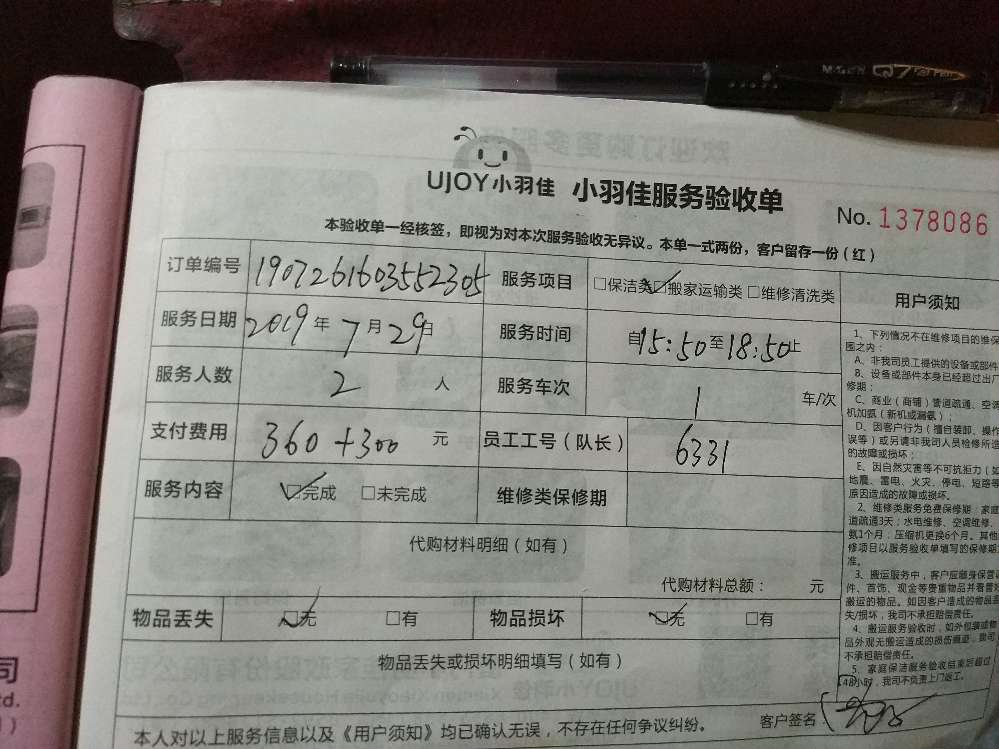 M&G Q7
UJOY小羽佳 小羽佳服务验收单
No. 1378086
本验收单一经核签，即视为对本次服务验收无异议。本单一式两份，客户留存一份（红）
订单编号 1907261603552305 服务项目 □保洁类 ☑搬家运输类 □维修清洗类
服务日期 2019年7月29日 服务时间 自15:50至18:50止
服务人数 2 人 服务车次 1 车/次
支付费用 360+300 元 员工工号（队长） 6331
服务内容 ☑完成 □未完成 维修类保修期
代购材料明细（如有）
代购材料总额： 元
物品丢失 ☑无 □有 物品损坏 ☑无 □有
物品丢失或损坏明细填写（如有）
本人对以上服务信息以及《用户须知》均已确认无误，不存在任何争议纠纷。 客户签名：
用户须知
1、下列情况不在维修项目的维保
围之内：
A、非我司员工提供的设备或部件
B、设备或部件本身已经超过出厂
修期；
C、商业（商铺）管道疏通、空调
机加氨（新机或漏氨）；
D、因客户行为（擅自装卸、操作
误等）或另请非我司人员检修所造
的故障或损坏；
E、因自然灾害等不可抗拒力（如
地震、雷电、火灾、停电、短路等
原因造成的故障或损坏。
2、维修类服务免费保修期：家庭
道疏通3天；水电维修、空调维修、
氨1个月；压缩机更换6个月。其他
修项目以服务验收单填写的保修期
准。
3、搬运服务中，客户应随身保管
件、首饰、现金等贵重物品并看管好
搬运的物品。如因客户造成的物品丢
失/损坏，我司不承担赔偿责任。
4、搬运服务验收时，如外包装或物
品外观无搬运造成的损伤痕迹，我司
不承担赔偿责任。
5、家庭保洁服务验收结束后超过
48小时，我司不负责上门返工。
司
td.